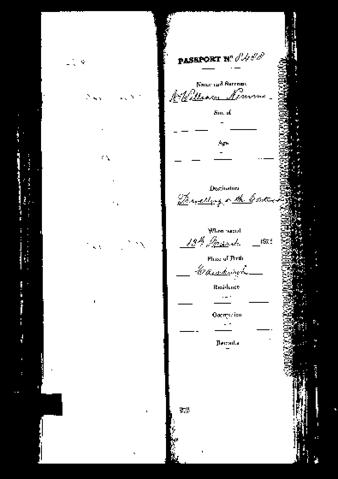 PASSPORT Nº 8488
Name and Surname
Mr William Nimmo
Son of
Age
Destination
Travelling on the Continent
When issued
19th March
Place of Birth
Edinburgh
Residence
Occupation
Remarks